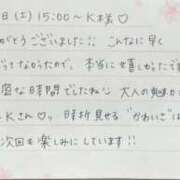 日(土) 15:00〜 K様♡
がとうございました!! こんなに早く
ってなかったので、本当に嬉しかったです
密な時間でしたね♪ 大人の魅力
Kさん♡ 時折見せる"かわいさ"は
次回も楽しみにしています!!